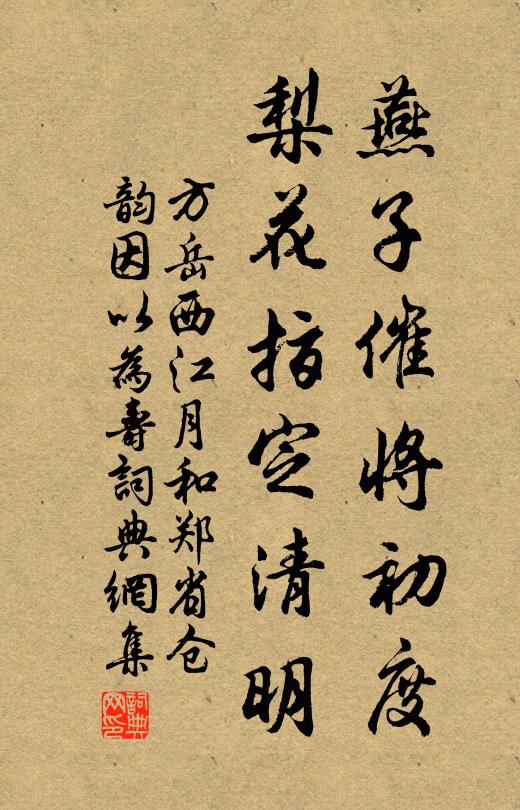 燕子催将初度
梨花指定清明
方岳西江月和郑省仓
韵因以為壽詞典網集
詞典网印